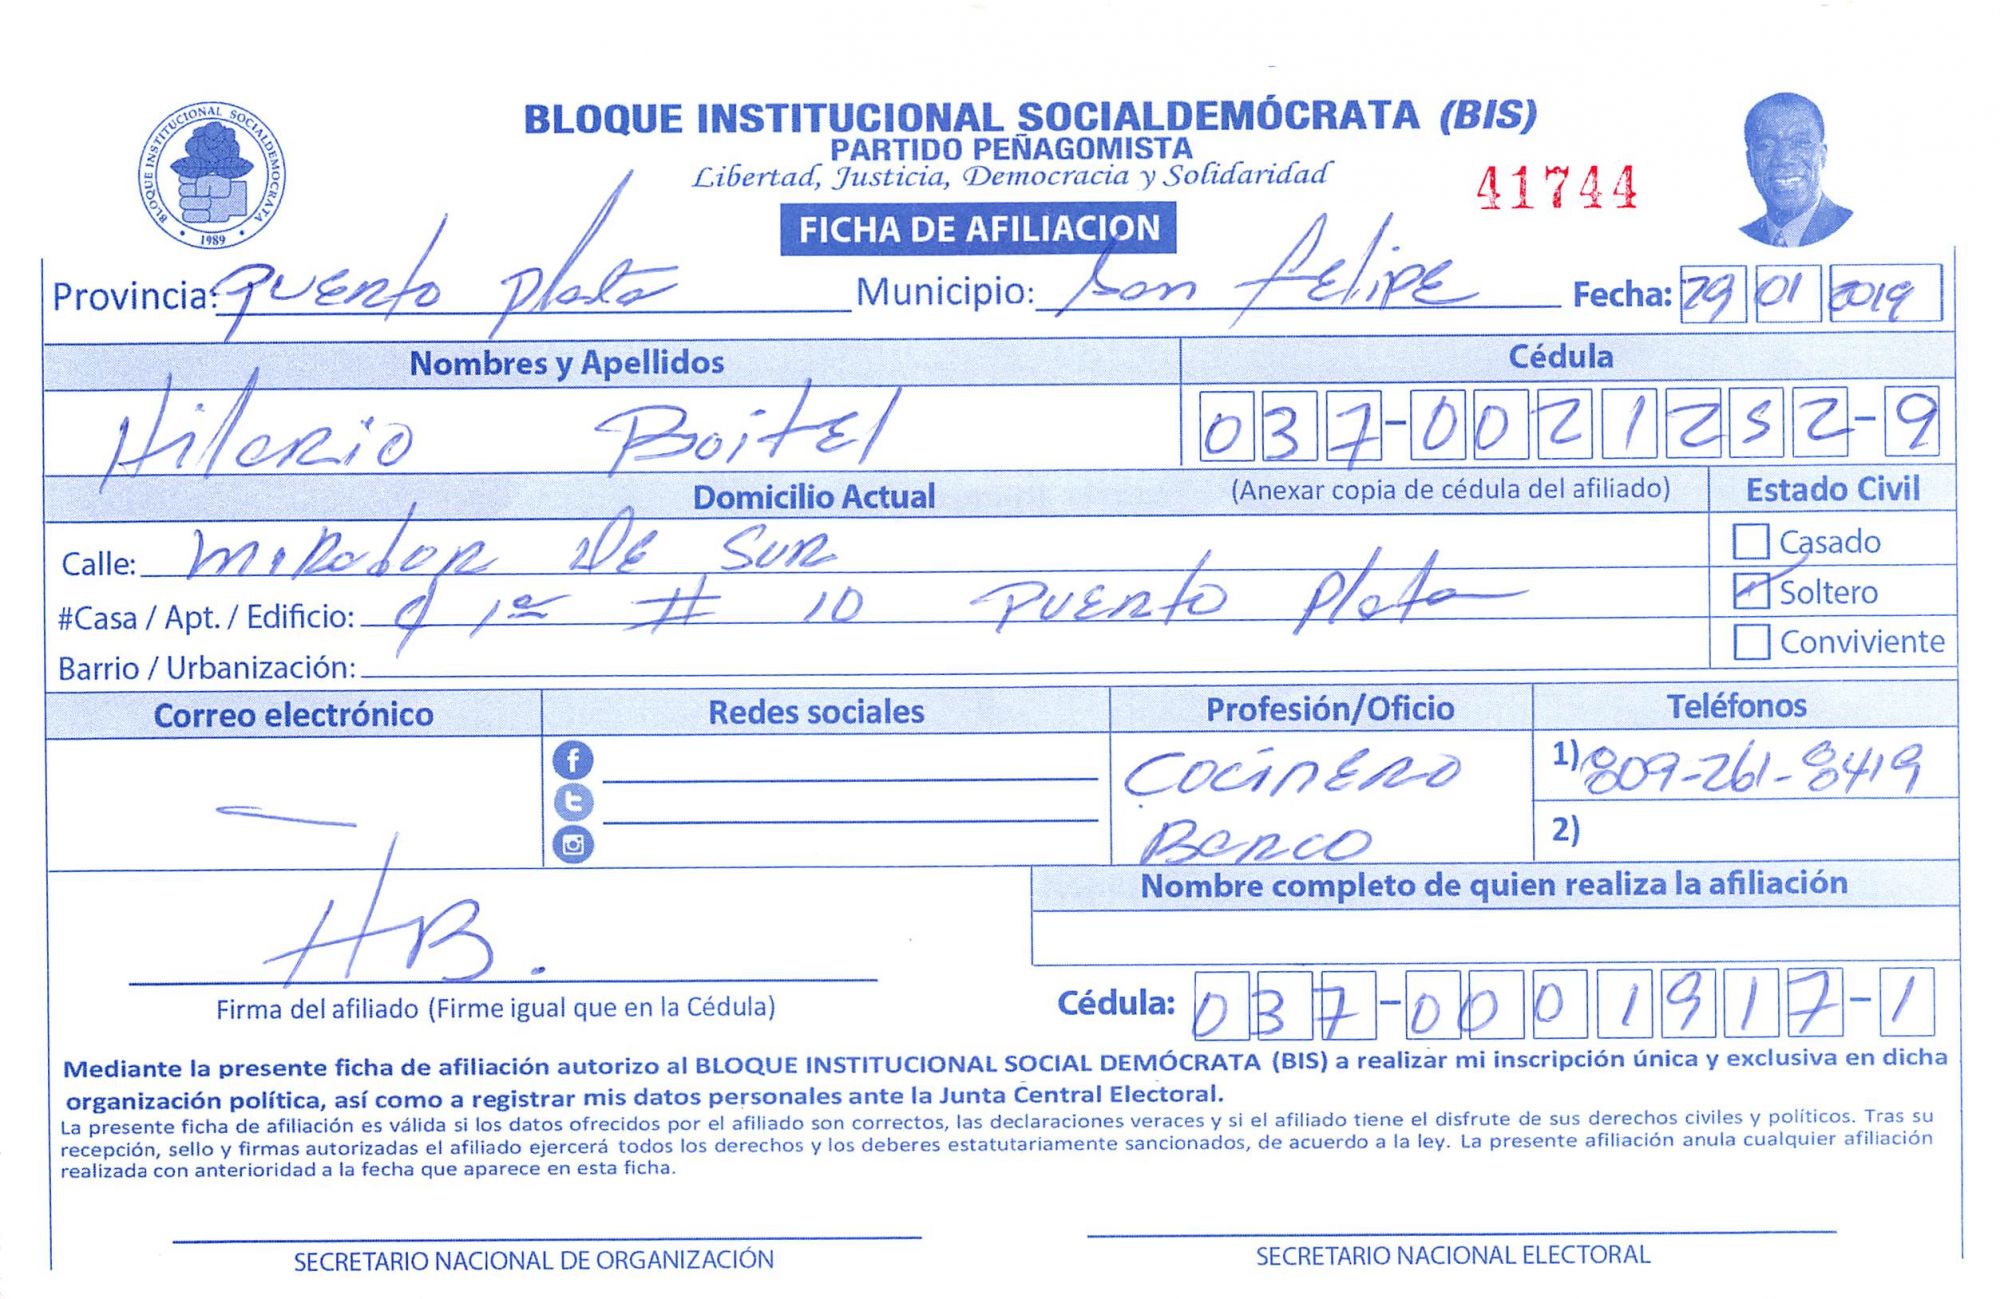 BLOQUE INSTITUCIONAL SOCIALDEMÓCRATA (BIS)
PARTIDO PEÑAGOMISTA
Libertad, Justicia, Democracia y Solidaridad
41744
BLOQUE INSTITUCIONAL SOCIALDEMOCRATA
• 1989 •
FICHA DE AFILIACION
Provincia: Puerto Plata Municipio: San Felipe Fecha: 29 01 2019
Nombres y Apellidos Cédula
Hilario Boitel 037-0021252-9
Domicilio Actual (Anexar copia de cédula del afiliado) Estado Civil
Calle: Mirador De Sur Casado
#Casa / Apt. / Edificio: 1ra # 10 Puerto Plata Soltero
Barrio / Urbanización: Conviviente
Correo electrónico Redes sociales Profesión/Oficio Teléfonos
Cocinero 1) 809-261-8419
Barco 2)
Nombre completo de quien realiza la afiliación
HB.
Firma del afiliado (Firme igual que en la Cédula) Cédula: 037-0001917-1
Mediante la presente ficha de afiliación autorizo al BLOQUE INSTITUCIONAL SOCIAL DEMÓCRATA (BIS) a realizar mi inscripción única y exclusiva en dicha
organización política, así como a registrar mis datos personales ante la Junta Central Electoral.
La presente ficha de afiliación es válida si los datos ofrecidos por el afiliado son correctos, las declaraciones veraces y si el afiliado tiene el disfrute de sus derechos civiles y políticos. Tras su
recepción, sello y firmas autorizadas el afiliado ejercerá todos los derechos y los deberes estatutariamente sancionados, de acuerdo a la ley. La presente afiliación anula cualquier afiliación
realizada con anterioridad a la fecha que aparece en esta ficha.
SECRETARIO NACIONAL DE ORGANIZACIÓN SECRETARIO NACIONAL ELECTORAL